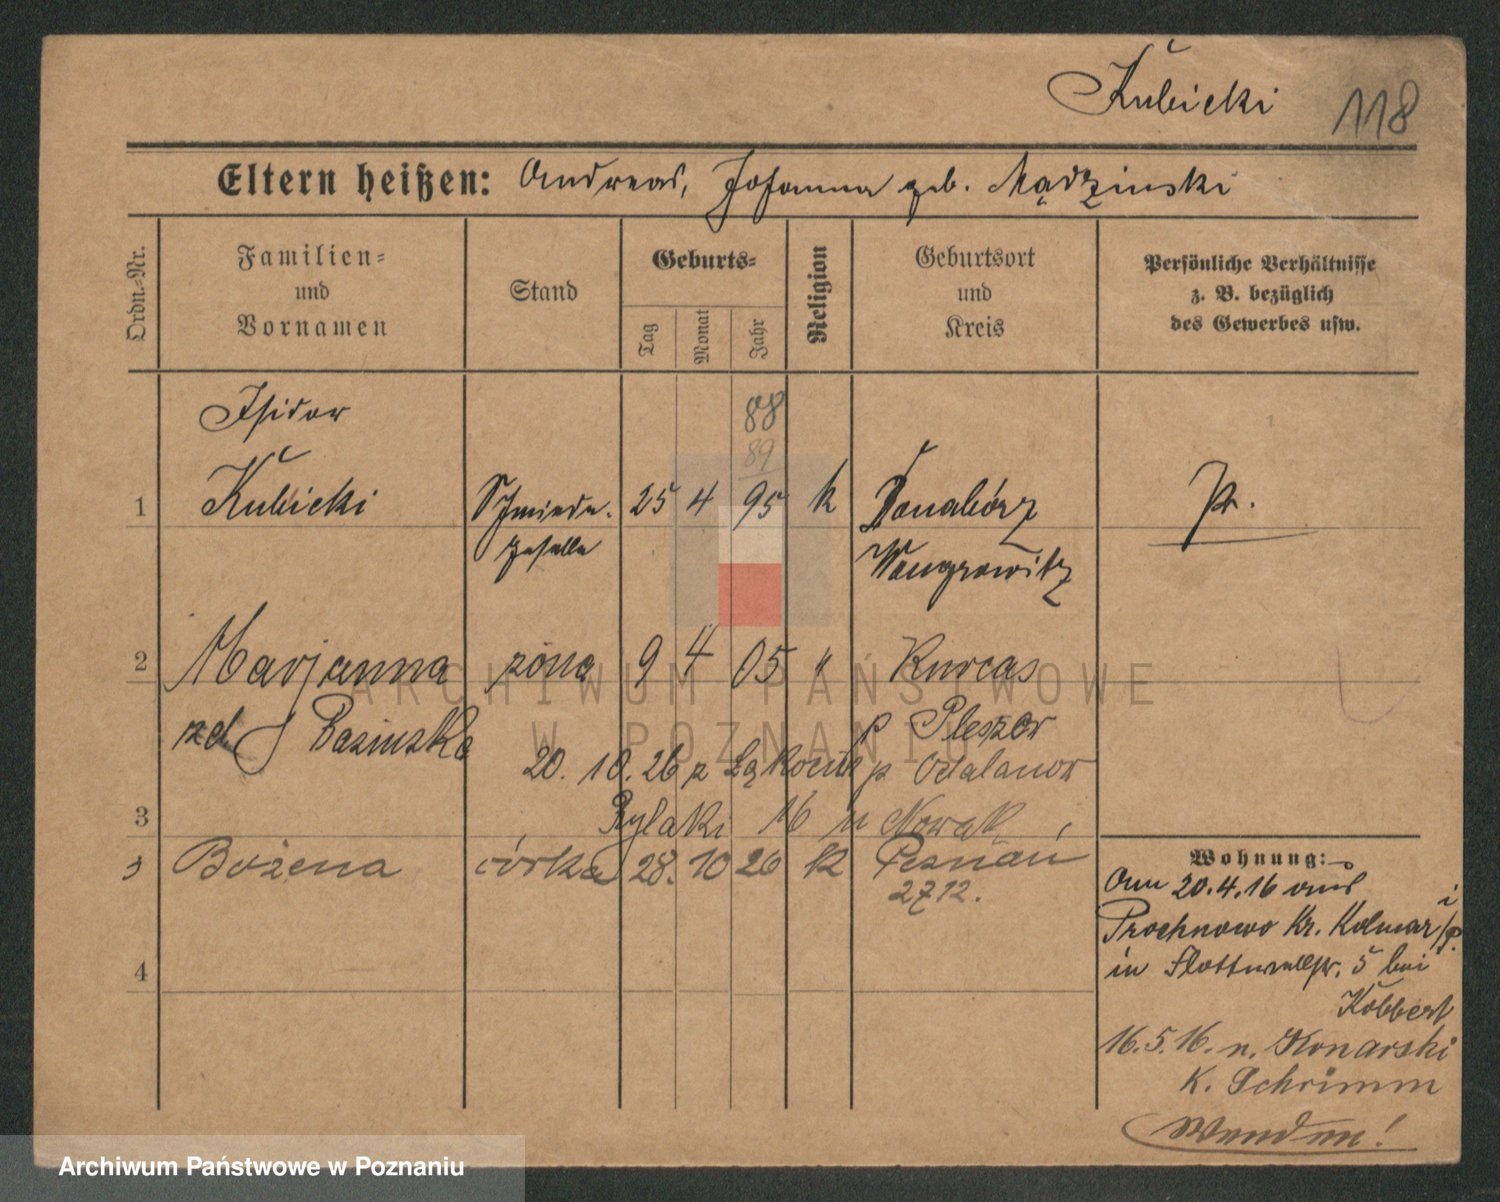 Kubicki 118
Eltern heißen: Andreas, Johanna geb. Mądzinski
Ordn.-Nr.
Familien-
und
Vornamen
Stand
Geburts-
Tag
Monat
Jahr
Religion
Geburtsort
und
Kreis
Persönliche Verhältnisse
z. B. bezüglich
des Gewerbes usw.
Isidor 88
89
1 Kubicki Schmiede- 25 4 95 k Donabórz Pr.
geselle Wongrowitz
2 Marjanna żona 9 4 05 " Kurcas
zd Basinska p Pleszew
20. 10. 26 z Łąkocin p Odalanow
3 Rylaki 16 u Nowak
3 Bożena córka 28. 10 26 k Poznań
2712.
4
Wohnung:
Am 20.4.16 aus
Prochnowo Kr. Kolmar i/P.
in Flottwellstr. 5 bei
Kobbert
16.5.16. n. Konarski
K. Schrimm
Wenden!
ARCHIWUM PAŃSTWOWE
W POZNANIU
Archiwum Państwowe w Poznaniu